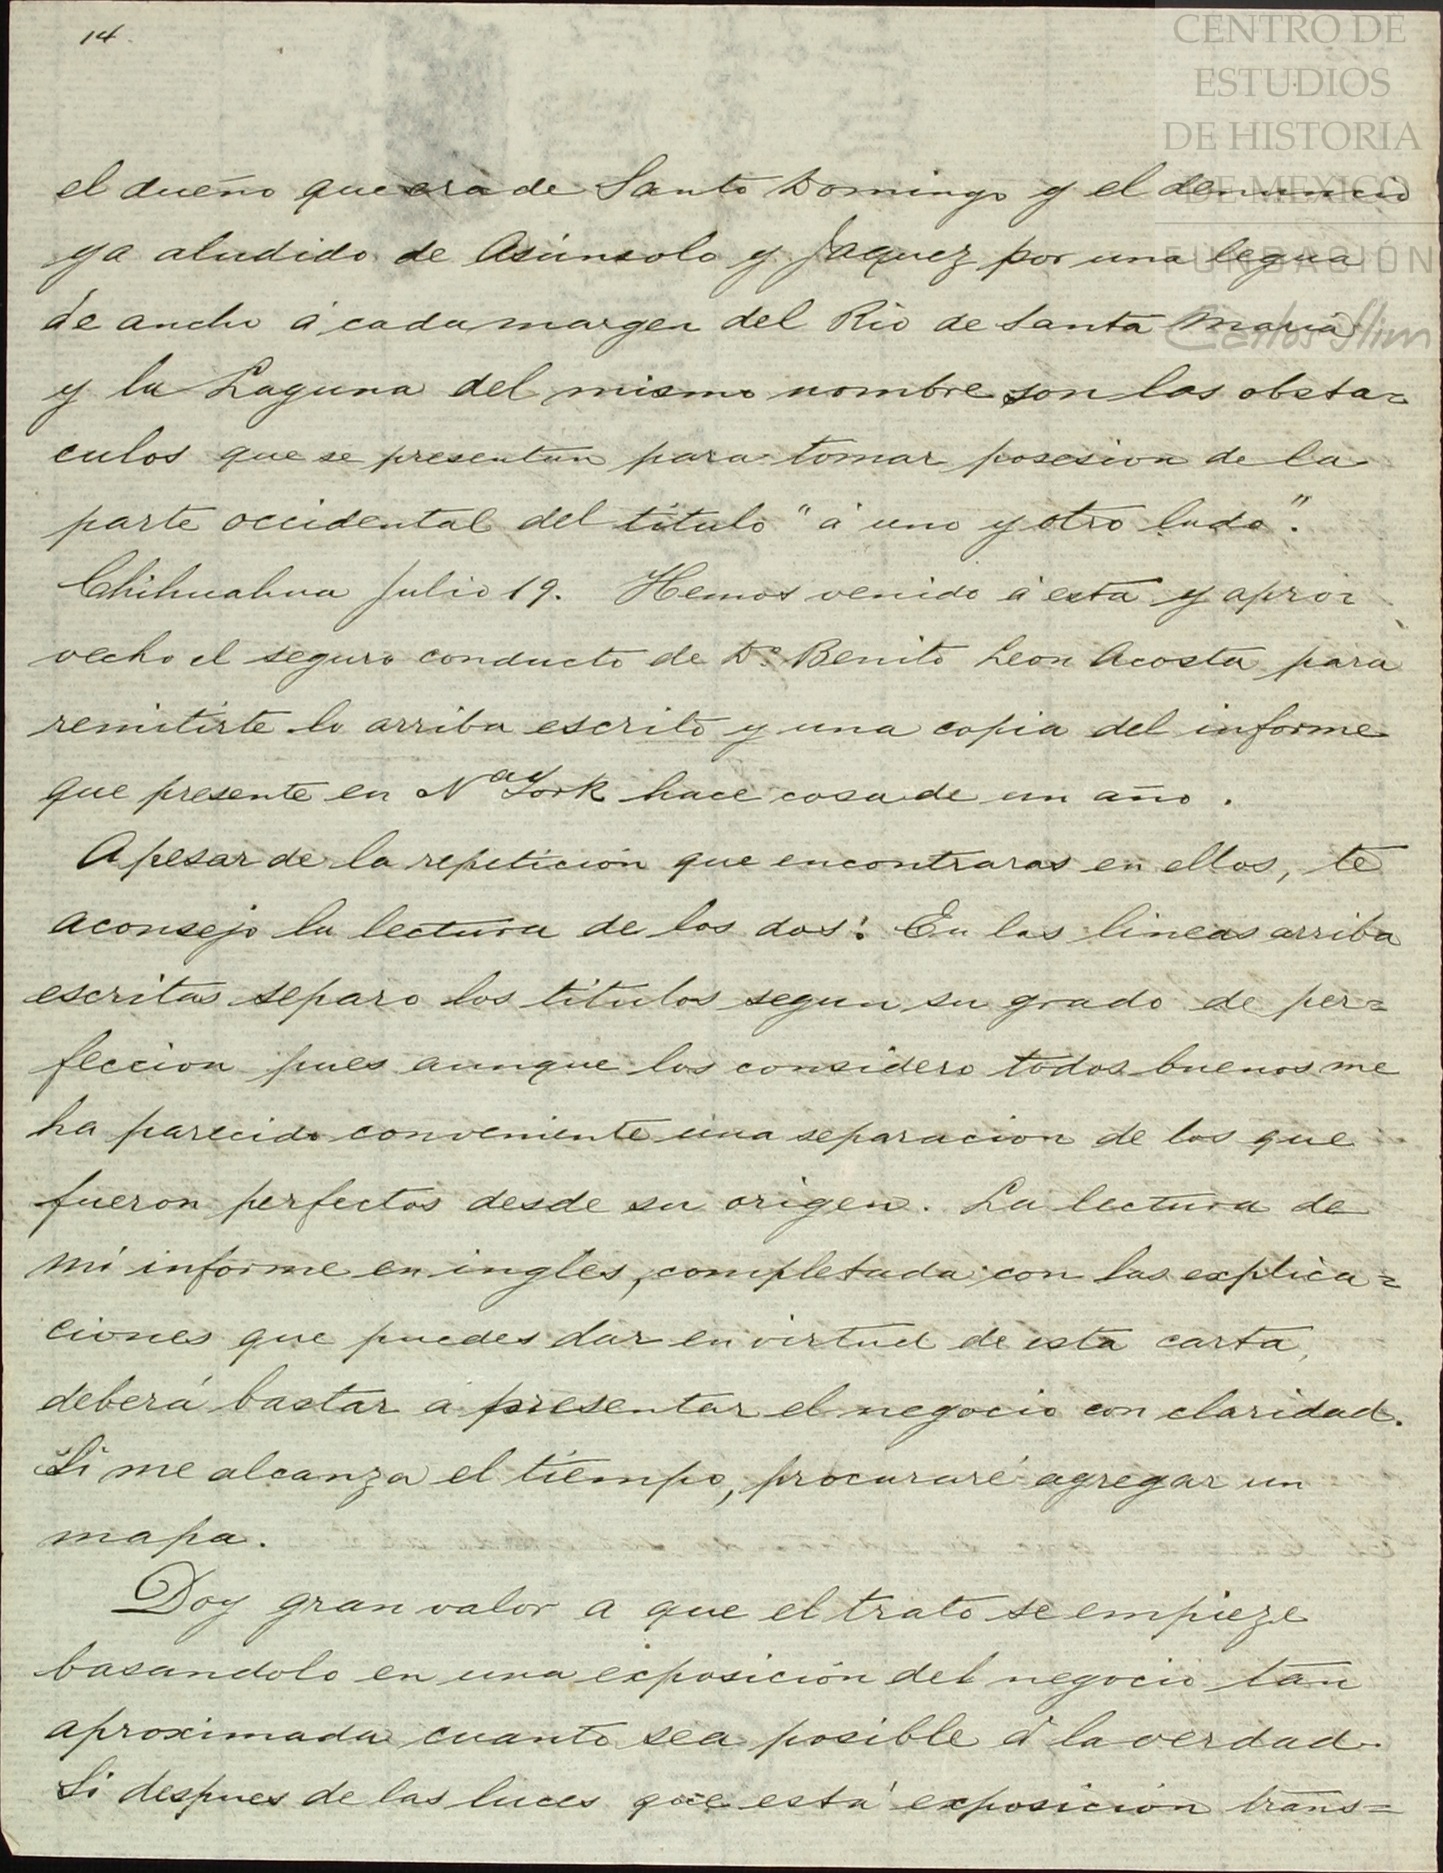 14
CENTRO DE
ESTUDIOS
DE HISTORIA
DE MEXICO
FUNDACIÓN
Carlos Slim
el dueño que era de Santo Domingo y el denuncio
ya aludido de Asúnsolo y Jaquez por una legua
de ancho á cada margen del Rio de Santa Maria
y la Laguna del mismo nombre son los obsta=
culos que se presentan para tomar posesion de la
parte occidental del titulo "á uno y otro lado".
Chihuahua Julio 19. Hemos venido á esta y apro=
vecho el seguro conducto de Dn Benito Leon Acosta para
remitirte lo arriba escrito y una copia del informe
que presente en Nª York hace cosa de un año.
Apesar de la repetición que encontraras en ellos, te
aconsejo la lectura de los dos: En las lineas arriba
escritas separo los titulos segun su grado de per=
feccion pues aunque los considero todos buenos me
ha parecido conveniente una separacion de los que
fueron perfectos desde su origen. La lectura de
mi informe en ingles, completada con las explica=
ciones que puedes dar en virtud de esta carta,
deberá bastar a presentar el negocio con claridad.
Si me alcanza el tiempo, procuraré agregar un
mapa.
Doy gran valor a que el trato se empieze
basandolo en una exposición del negocio tan
aproximada cuanto sea posible á la verdad.
Si despues de las luces que está exposición trans=